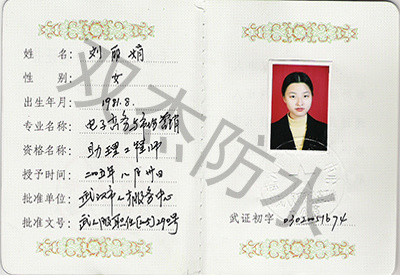 姓 名: 刘丽娟
性 别: 女
出生年月: 1981.8.
专业名称: 电子商务与市场营销
资格名称: 助理工程师
授予时间: 二00五年八月廿四日
批准单位: 武汉市人才服务中心
批准文号: 武人服职任(2005)290号
武证初字 0302051674
双杰防水